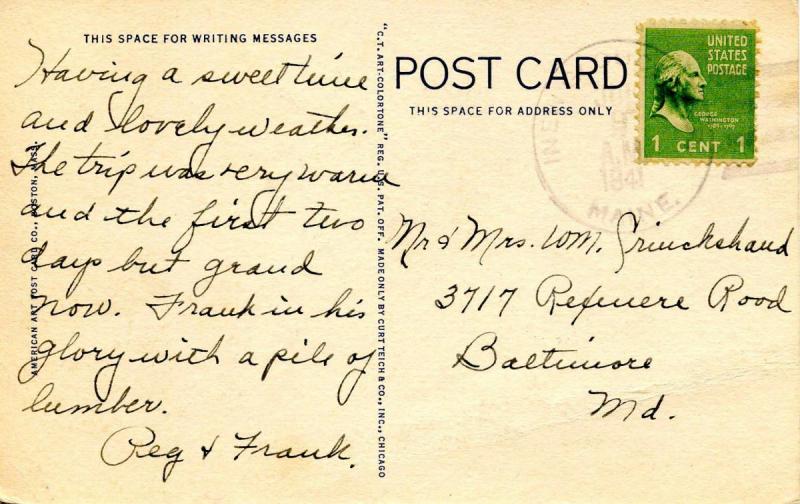 THIS SPACE FOR WRITING MESSAGES
Having a sweet time
and lovely weather.
The trip was very warm
and the first two
days but grand
now. Frank in his
glory with a pile of
lumber.
Peg & Frank.
AMERICAN ART POST CARD CO., BOSTON, MASS.
"C.T. ART-COLORTONE" REG. U.S. PAT. OFF. MADE ONLY BY CURT TEICH & CO., INC., CHICAGO
POST CARD
THIS SPACE FOR ADDRESS ONLY
UNITED
STATES
POSTAGE
GEORGE
WASHINGTON
1 CENT 1
A.M
1941
MAINE.
Mr & Mrs. WM.
3717 Road
Baltimore
Md.